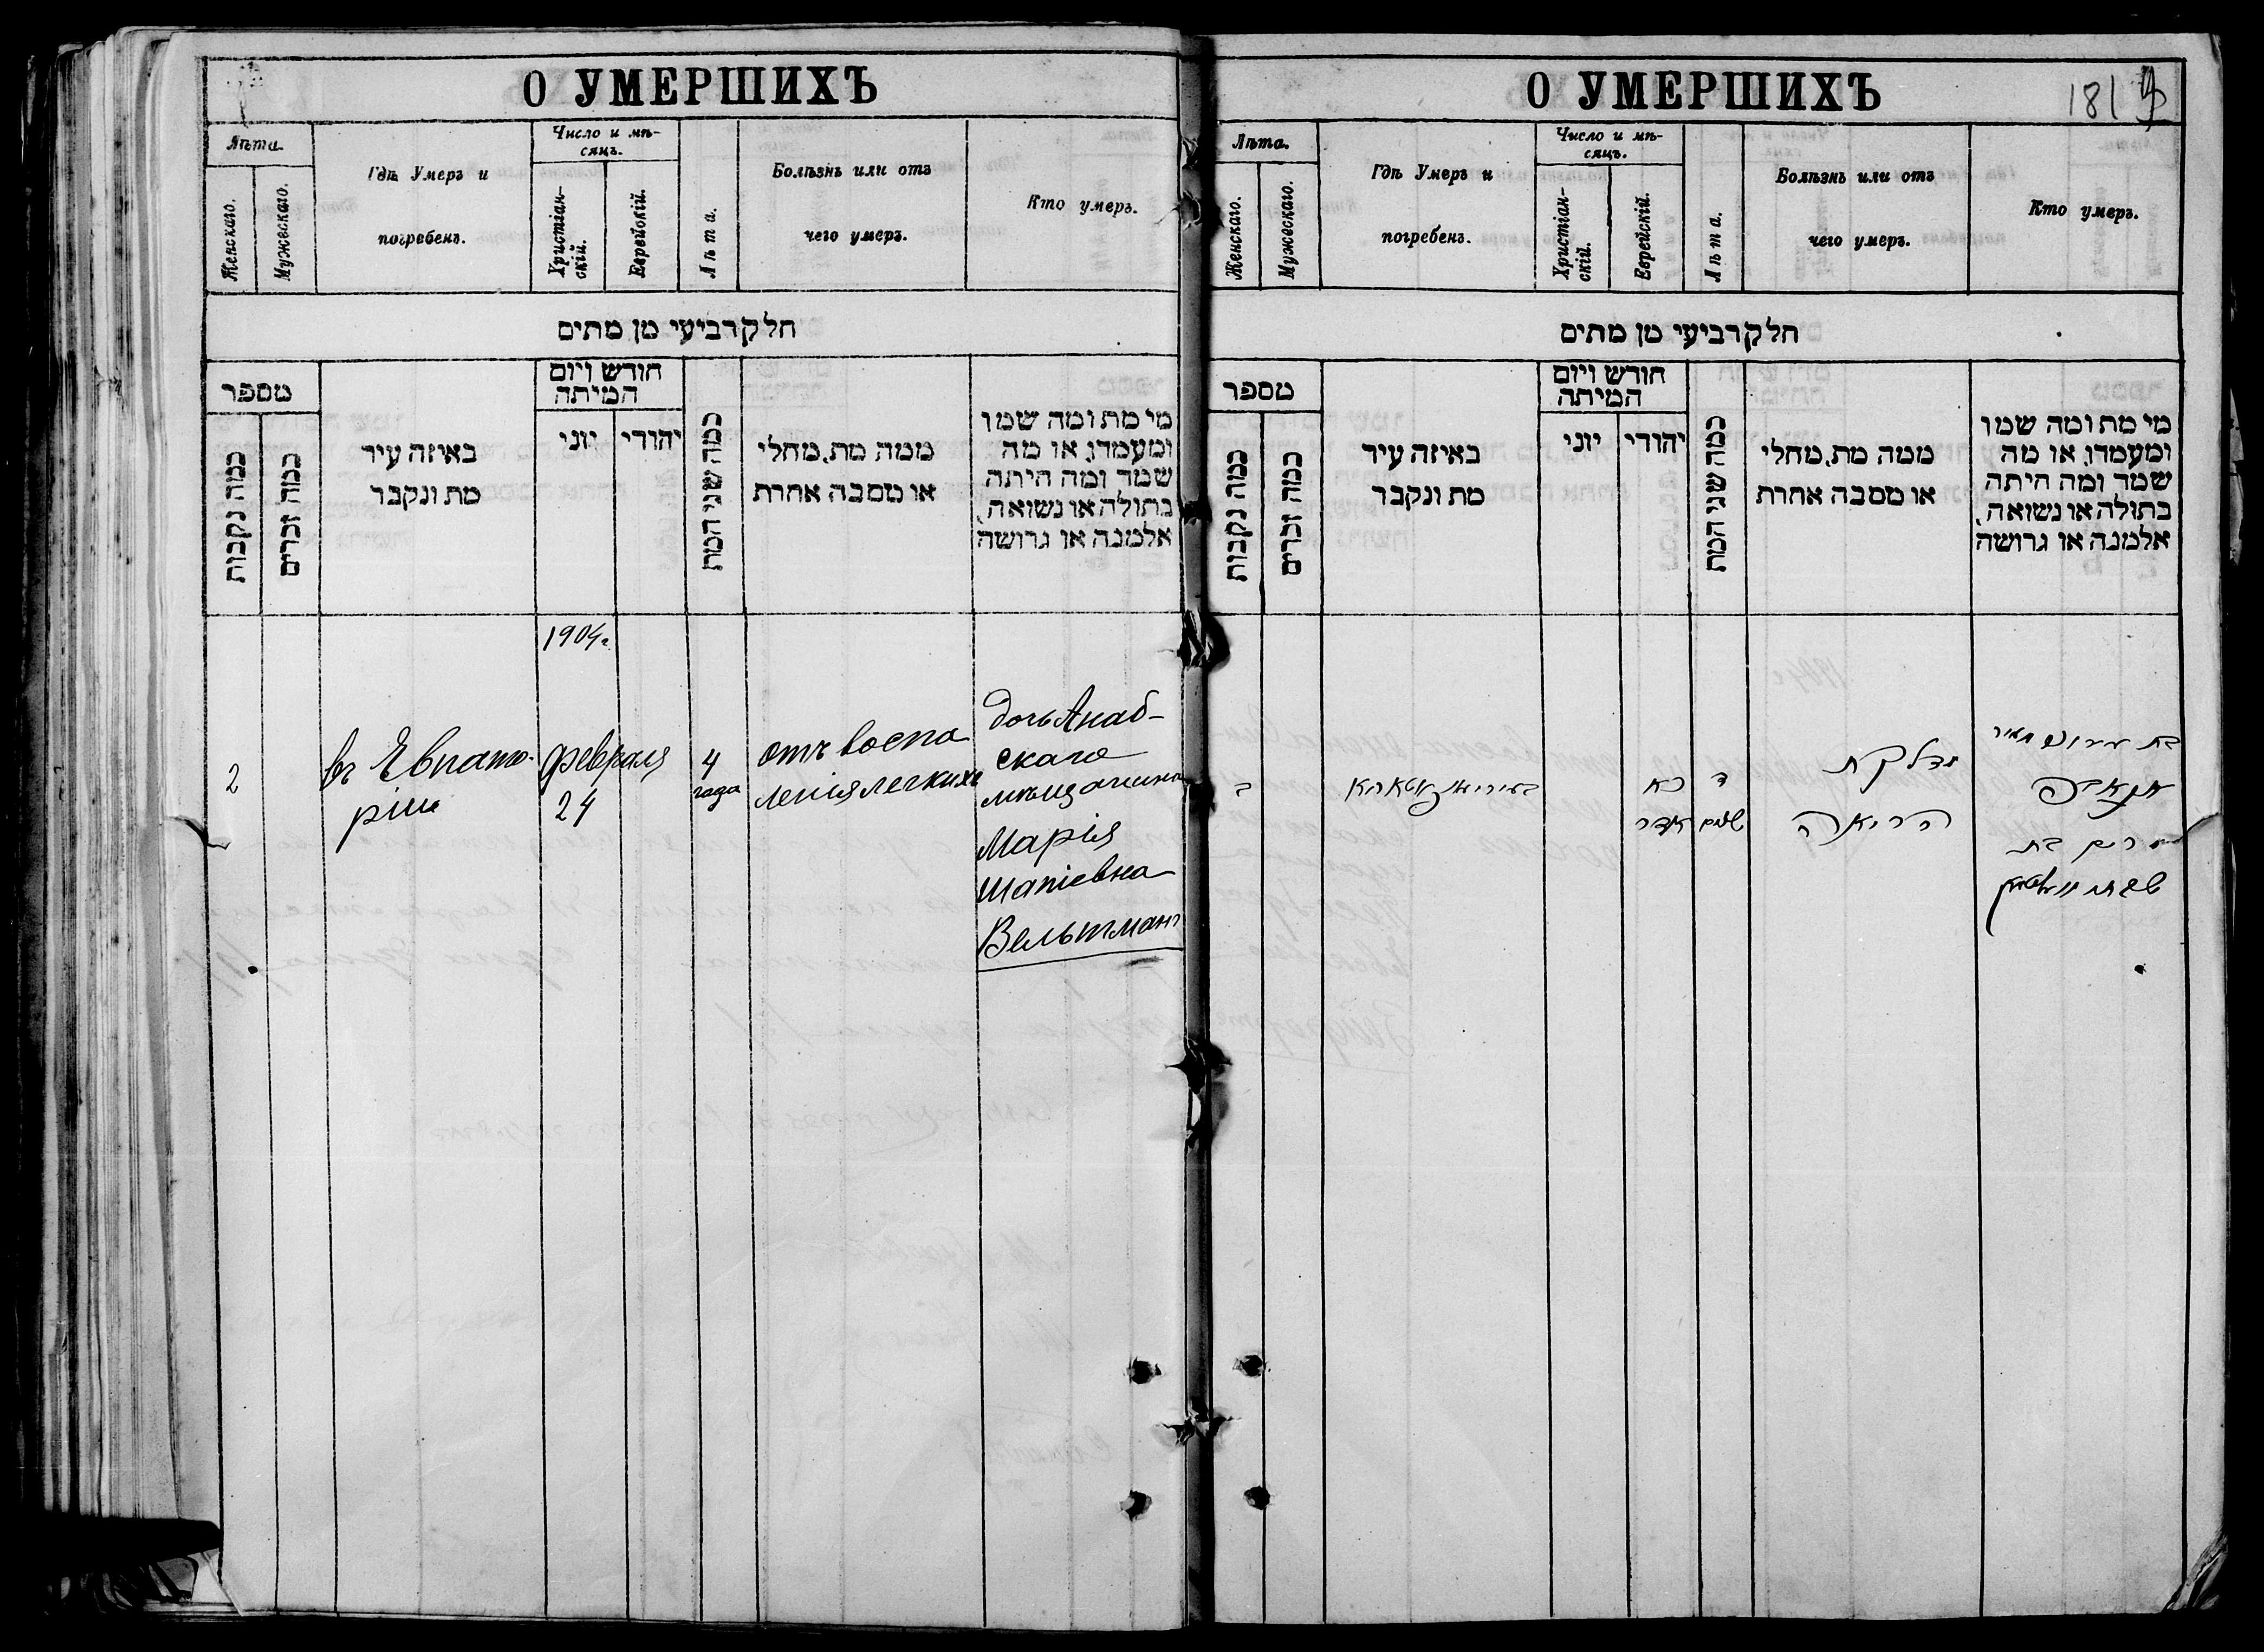 О УМЕРШИХЪ
Лѣта.
Женскаго.
Мужескаго.
Гдѣ Умеръ и
погребенъ.
Число и мѣ-
сяцъ.
Христіан-
скій.
Еврейскій.
Лѣта.
Болѣзнь или отъ
чего умеръ.
Кто умеръ.
חלק רביעי מן מתים
מספר
כמה נקבות
כמה זכרים
באיזה עיר
מת ונקבר
חודש ויום
המיתה
יוני
יהודי
כמה שני המת
ממה מת, מחלי
או מסבה אחרת
מי מת ומה שמו
ומעמדו, או מה
שמד ומה היתה
בתולה או נשואה,
אלמנה או גרושה
1904г.
2
въ Евпато-
ріи
февраля
24
4
года
отъ воспа
ленія легкихъ
дочь Анаб-
скаго
мѣщанина
Марія
Шапіевна
Вельтманъ
О УМЕРШИХЪ
181
Лѣта.
Женскаго.
Мужескаго.
Гдѣ Умеръ и
погребенъ.
Число и мѣ-
сяцъ.
Христіан-
скій.
Еврейскій.
Лѣта.
Болѣзнь или отъ
чего умеръ.
Кто умеръ.
חלק רביעי מן מתים
מספר
כמה נקבות
כמה זכרים
באיזה עיר
מת ונקבר
חודש ויום
המיתה
יוני
יהודי
כמה שני המת
ממה מת, מחלי
או מסבה אחרת
מי מת ומה שמו
ומעמדו, או מה
שמד ומה היתה
בתולה או נשואה,
אלמנה או גרושה
ב
כא
אדר
ד
שנים
מדלקת
הריאה
בת
מרים בת
שבתי וועלטמאן